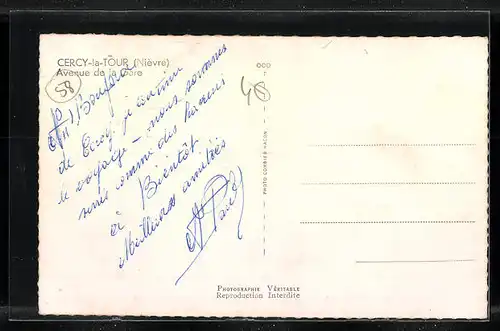 CERCY-la-TOUR (Nièvre)
Avenue de la Gare
58
48
Bonjour
de Cercy, je continue
le voyage - nous sommes
serrés comme des harengs
à Bientôt
Meilleures amitiés
PHOTO COMBIER MACON
PHOTOGRAPHIE VÉRITABLE
Reproduction Interdite